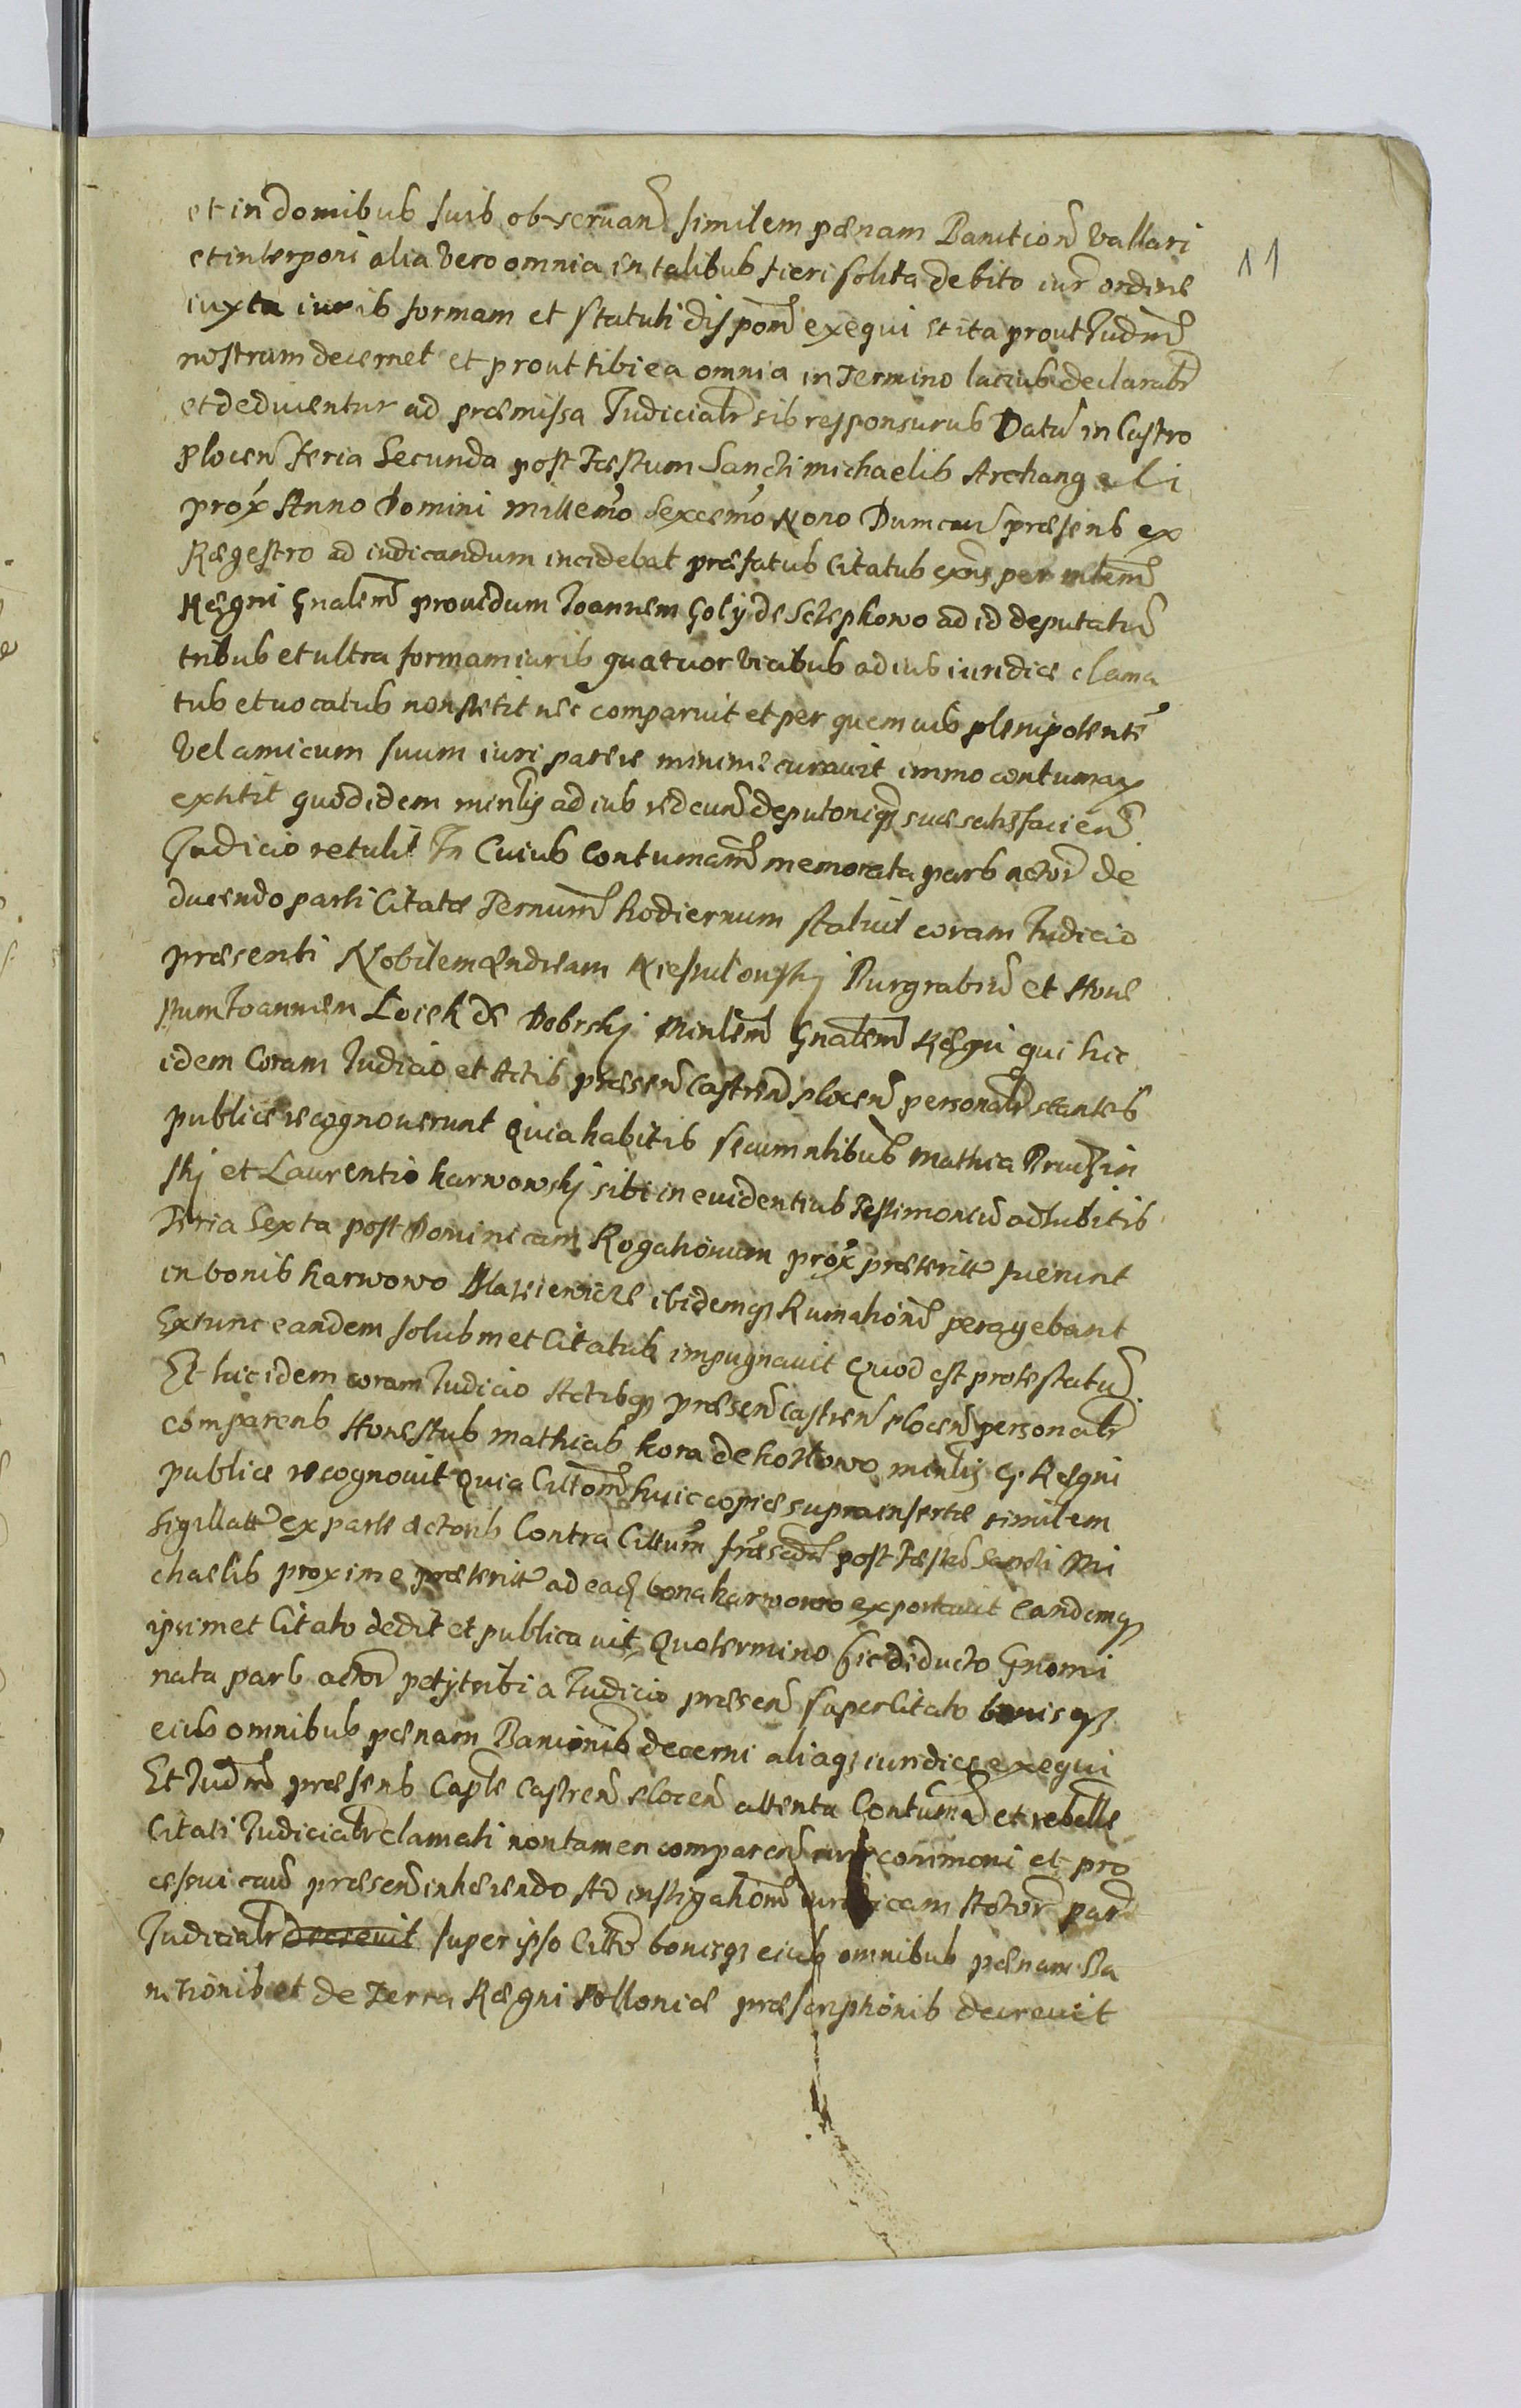 et in domibus suis observan similem pœnam Banitioñ vallari
et interponi alia vero omnia in talibus fieri solita debito iur ordine
iuxta iuris formam et statuti disponẽ exequi et ita prout Iudm̃
nostrum decernet et prout tibi ea omnia in Termino latius declarabr̃
et deducentur ad præmissa Iudicialr̃ sis responsurus Datũ in Castro
Plocen̄ feria Secunda post Fæstum Sancti michaelis Archangeli
prox̃ Anno Domini millem̃o Sexcem̃o Nono Dum cau præsens ex
Rægestro ad iudicandum incidebat præfatus Citatus ex̃ns per mlem̃
Regni Gnalem̃ providum Ioannem Goly de Sclepkowo ad id deputatũ
tribus et ultra formam iuris quatuor vicibus ad ius iuridice clama
tus et vocatus non stetit nec comparuit et per quemvis plenipotentẽ
vel amicum suum iuri parere minime curavit immo contumax
extitit quod idem minl̃is ad ius redeun deputoniq̃ suæ satisfacien̄
Iudicio retulit In Cuius Contumam̃ memorata pars actor̃ de
ducendo parti Citatæ Termum̃ hodiernum statuit coram Iudicio
præsenti Nobilem Andream Burgrabiũ et Hone
stum Ioannem Locek de Dobrski Minl̃em Gnalem̃ Regni qui hic
idem Coram Iudicio et Actis præsen̄ Castren̄ plocen̄ personalr̃ stantes
publice recognoverunt Quia habitis secum nlibus̃ Mathia Bruzin
ski et Laurentio karwowski sibi in evidentius Testimoniũ adhibitis
Feria Sexta post Dominicam Rogationum prox̃ præteritæ fuerunt
in bonis karwowo ibidemq̃ Rumation̄ peragebant
Extunc eandem solusmet Citatus impugnavit Quod est protestatũ
Et hic idem coram Iudicio Actisq̃ præsen̄ Castren̄ plocen̄ personalr̃
comparens Honestus mathias kora de koztowo minl̃is G. Regni
publice recognovit Quia Cittom̃ huic copiæ supra insertæ similem
sigillatæ ex parte Actoris Contra Cittum̃ fr̃a Scd̃a post Fæstũ Sancti Mi
chaelis proxime præteritæ ad ead bona karwowo exportavit eandemq̃
ipsimet Citato dedit et publicavit, Quo termino sic deducto Gnomi
nata pars actor̃ petyt sibi a Iudicio præsen̄ super Citato bonisq̃
eius omnibus pœnam Banionis̃ decerni aliaq̃ iuridice exequi
Et Iudm̃ præsens Caple Castren̄ plocen̄ attenta Contumã et rebelle
Citati Iudicialr̃ clamati non tamen comparen̄ iuri communi et pro
cessui cau præsen̄ inhærendo Ad instigationẽ iuridicam Actor̃ par
Iudicialr̃ decrevit super ipso Citto bonisq̃ eius omnibus pœnam Ba
nitionis et de Terra Rægni Polloniæ præscriptionis decrevit
11